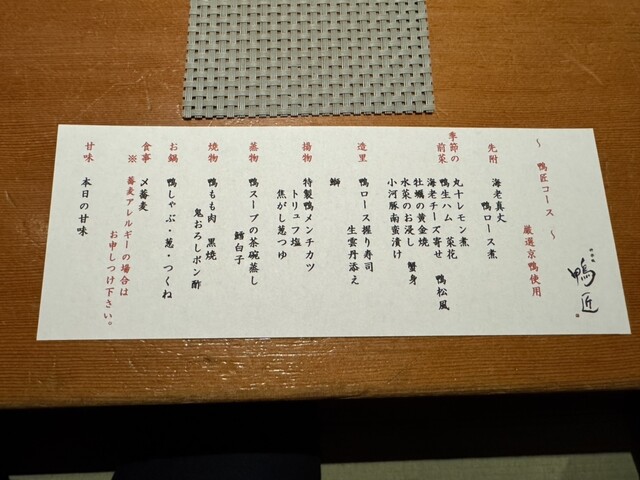 鴨匠
～ 鴨匠コース ～
厳選京鴨使用
先附
海老真丈
鴨ロース煮
季節の
前菜
丸十レモン煮
鴨生ハム 菜花 鴨松風
海老チーズ寄せ
牡蠣の黄金焼 蟹身
水菜のお浸し
小河豚南蛮漬け
造里
鴨ロース握り寿司
生雲丹添え
鰤
揚物
特製鴨メンチカツ
トリュフ塩
焦がし葱つゆ
蒸物
鴨スープの茶碗蒸し
鱈白子
焼物
鴨もも肉 黒焼
鬼おろしポン酢
お鍋
鴨しゃぶ・葱・つくね
食事
〆蕎麦
※ 蕎麦アレルギーの場合は
お申しつけ下さい。
甘味
本日の甘味